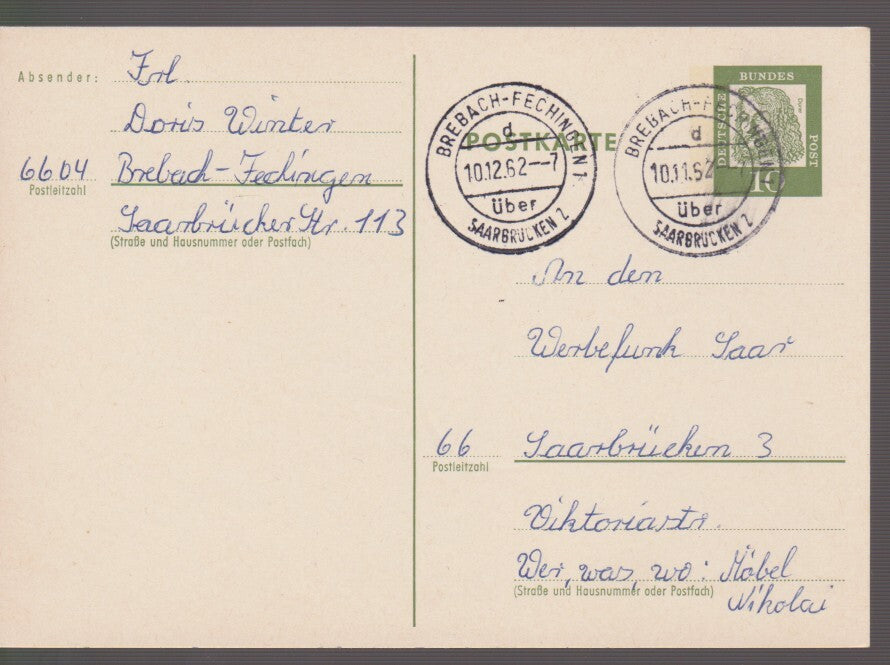 Absender: Frl.
Doris Winter
6604 Brebach-Fechingen
Postleitzahl
Saarbrücher Str. 113
(Straße und Hausnummer oder Postfach)
POSTKARTE
BREBACH-FECHINGEN 1
d
10.12.62--7
über
SAARBRÜCKEN 2
BREBACH-FECHINGEN
d
über
SAARBRÜCKEN 2
DEUTSCHE
BUNDES
POST
Dürer
10
An den
Werbefunk Saar
66 Saarbrücken 3
Postleitzahl
Viktoriastr.
Wer, was, wo: Möbel
Nikolai
(Straße und Hausnummer oder Postfach)